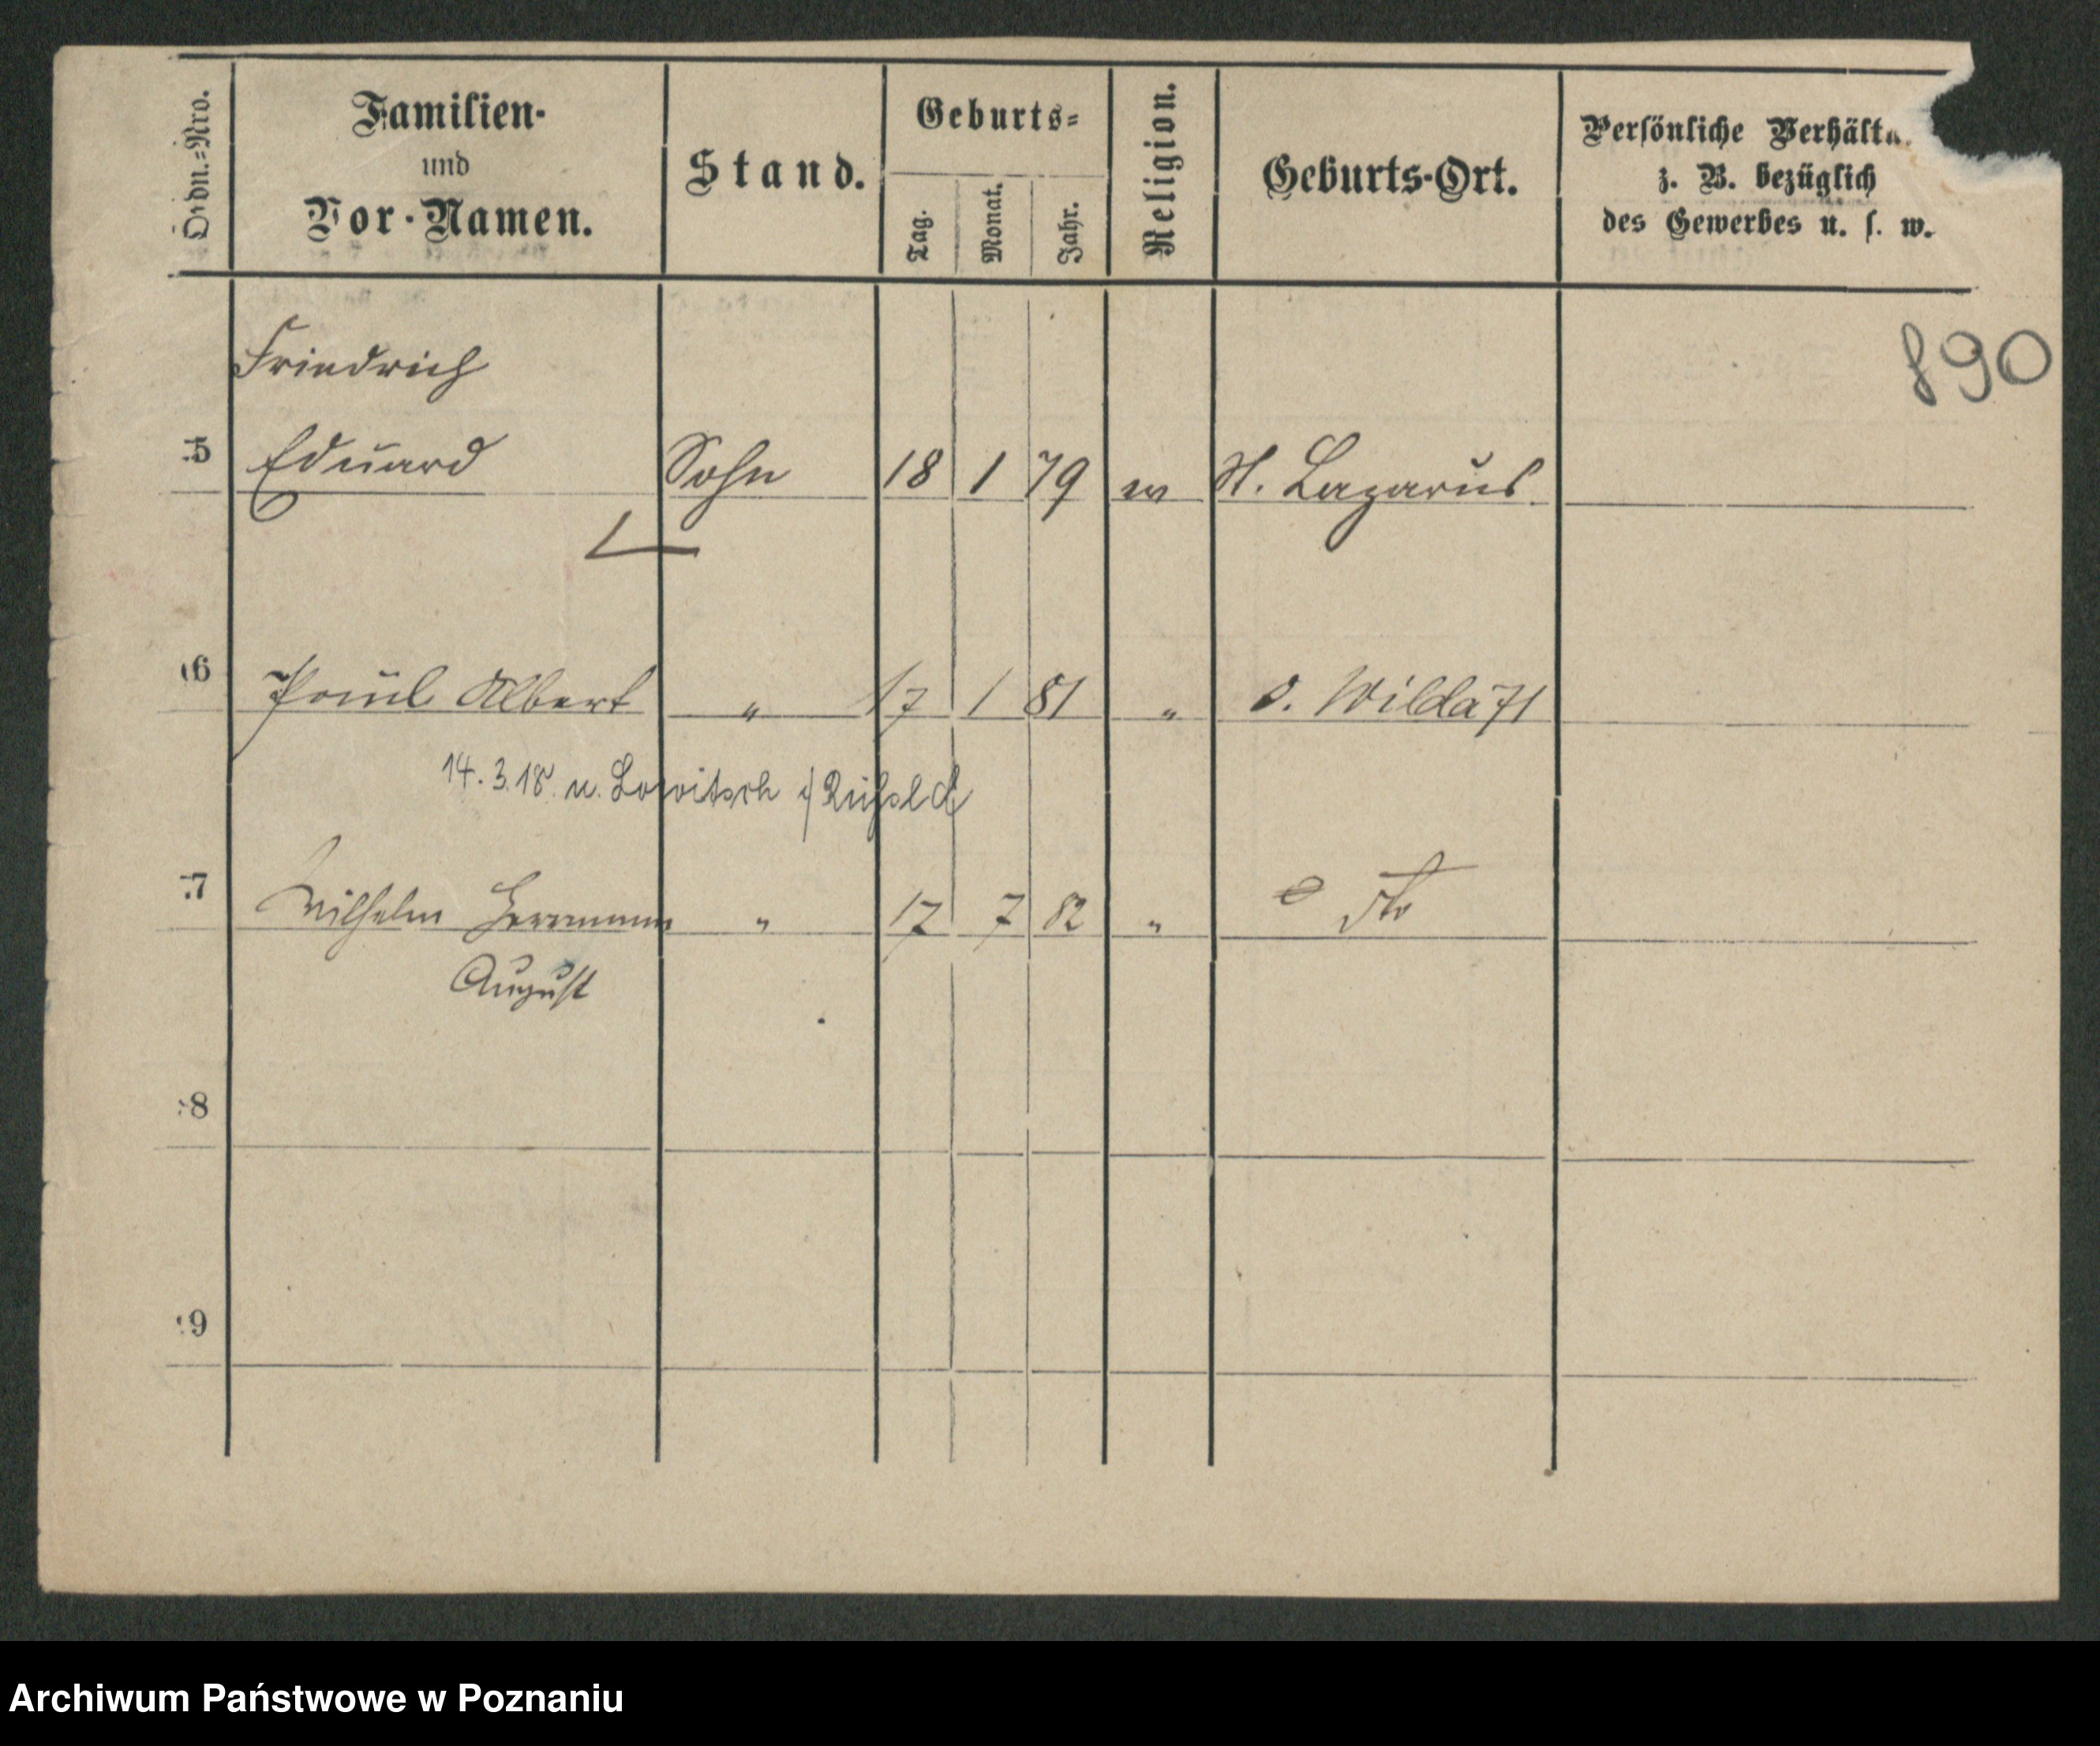 Ordn.=Nro.
Familien-
und
Vor-Namen.
Stand.
Geburts=
Tag.
Monat.
Jahr.
Religion.
Geburts-Ort.
Persönliche Verhältn
z. B. bezüglich
des Gewerbes u. s. w.
890
Friedrich
5 Eduard Sohn 18 1 79 ev St. Lazarus
6 Paul Albert " 17 1 81 " O. Wilda 71
14.3.18. n. Lowitsch
7 Wilhelm Herrmann " 17 7 82 " dto
August
8
9
Archiwum Państwowe w Poznaniu